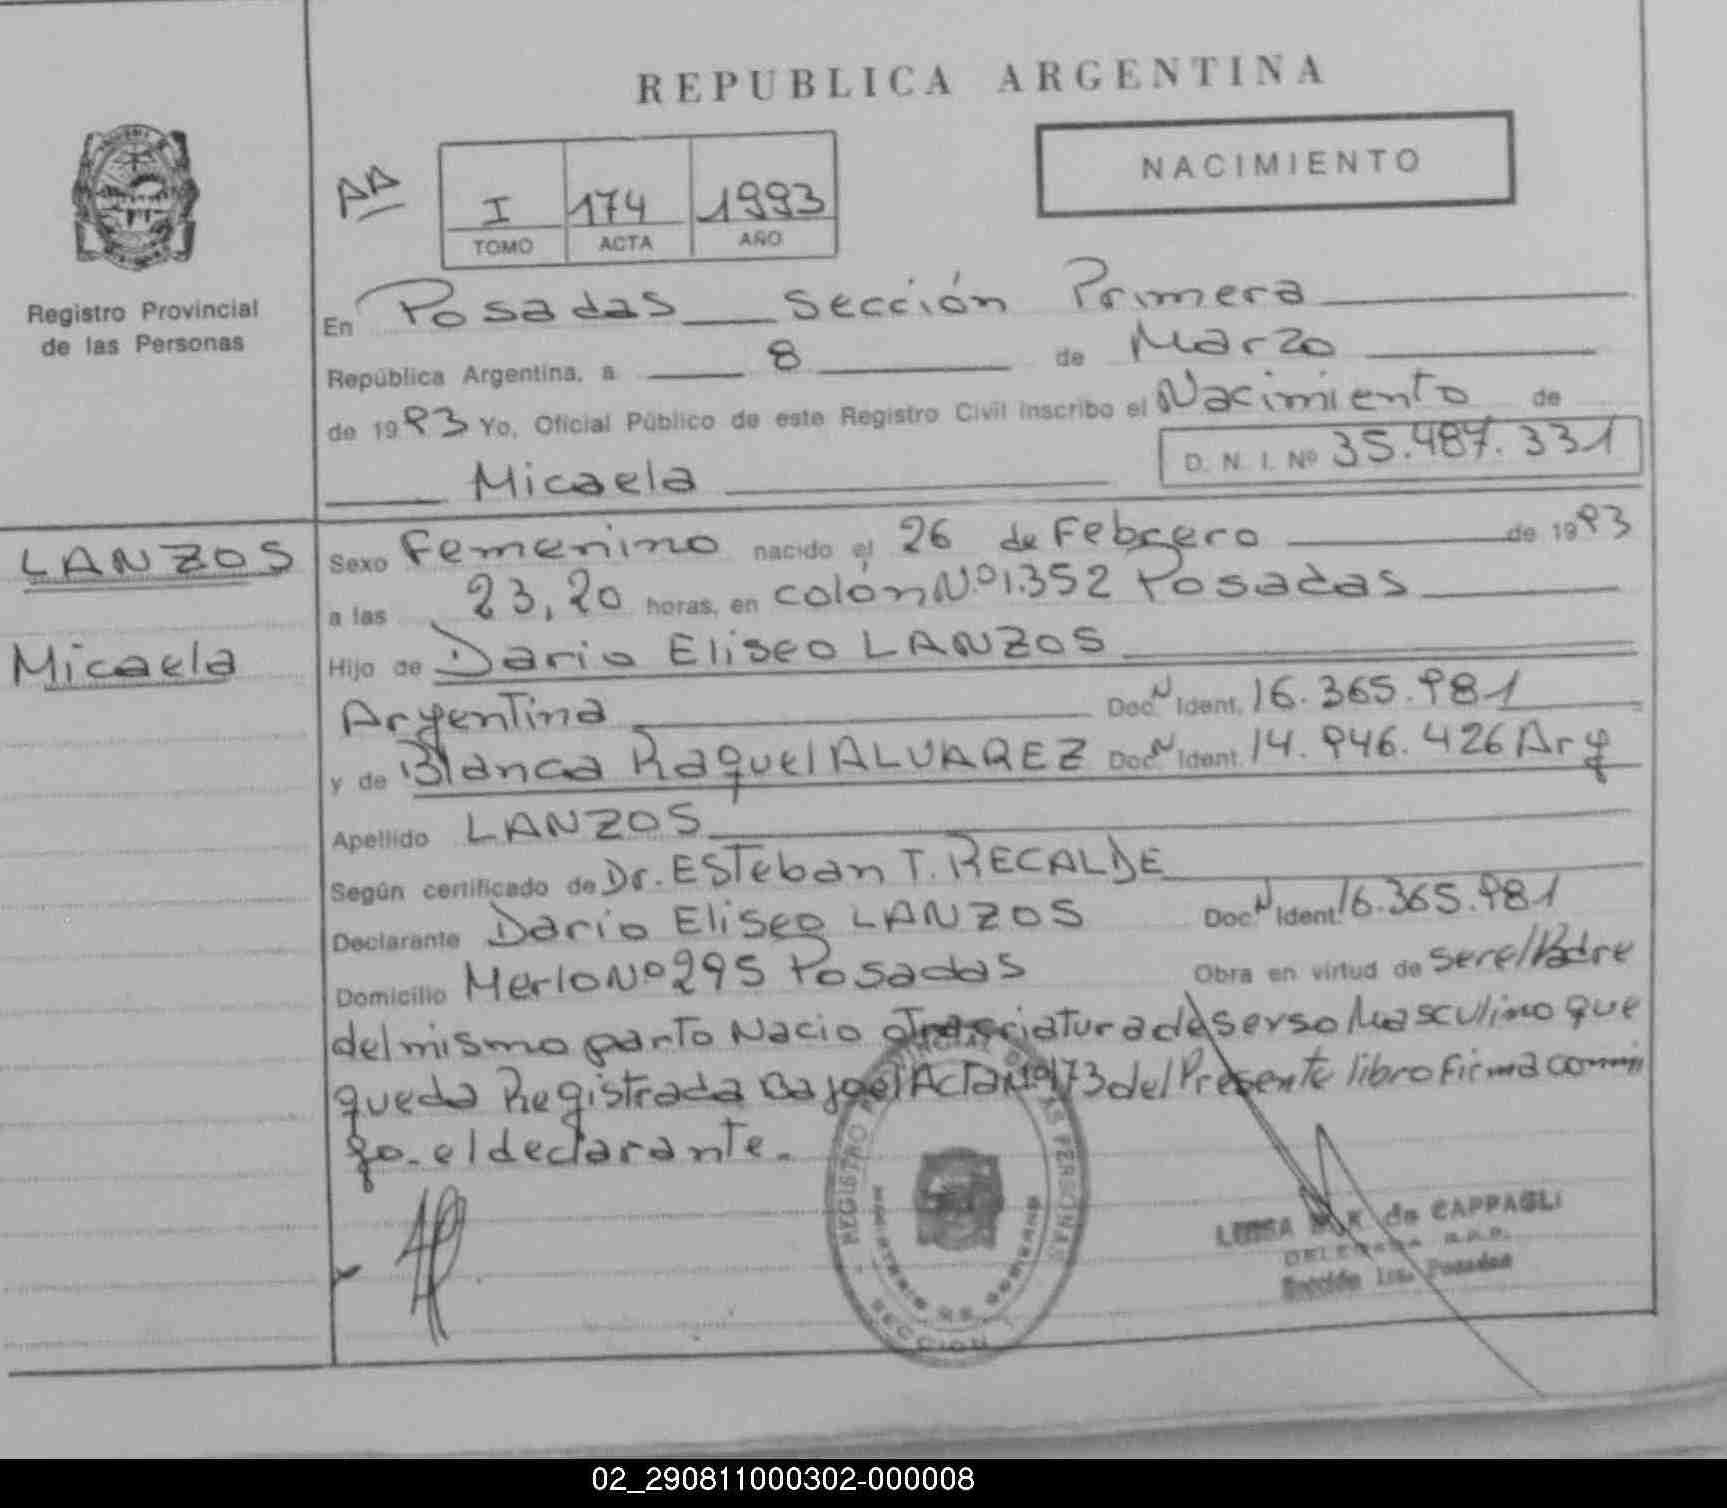 REPUBLICA ARGENTINA
NACIMIENTO
AA
I 174 1993
TOMO ACTA AÑO
Registro Provincial
de las Personas
En Posadas Sección Primera
República Argentina, a 8 de Marzo
de 1993 Yo, Oficial Público de este Registro Civil inscribo el Nacimiento de
Micaela D. N. I. Nº 35.487.331
LANZOS
Micaela
Sexo Femenino nacido el 26 de Febrero de 1993
a las 23,20 horas, en colón Nº 1.352 Posadas
Hijo de Dario Eliseo LANZOS
Argentina Doc. N Ident. 16.365.981
y de Blanca Raquel ALVAREZ Doc. N Ident. 14.946.426 Arg
Apellido LANZOS
Según certificado de Dr. ESTeban T. RECALDE
Declarante Dario Eliseo LANZOS Doc. N Ident. 16.365.981
Domicilio Merlo Nº 295 Posadas Obra en virtud de ser el Padre
del mismo parto Nacio otra criatura de serso Masculino que
queda Registrada Bajo el Acta Nº 173 del Presente libro firma conmi
go. el declarante.
REGISTRO PROVINCIAL DE LAS PERSONAS
MINISTERIO DE GOBIERNO
SECCION
LUISA M. K. de CAPPAGLI
DELEGADA R.P.P.
Sección 1ra. Posadas
02_290811000302-000008